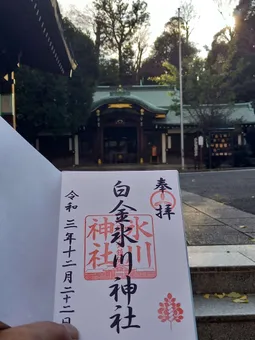 奉拝
白金氷川神社
氷川
神社
令和三年十二月二十二日